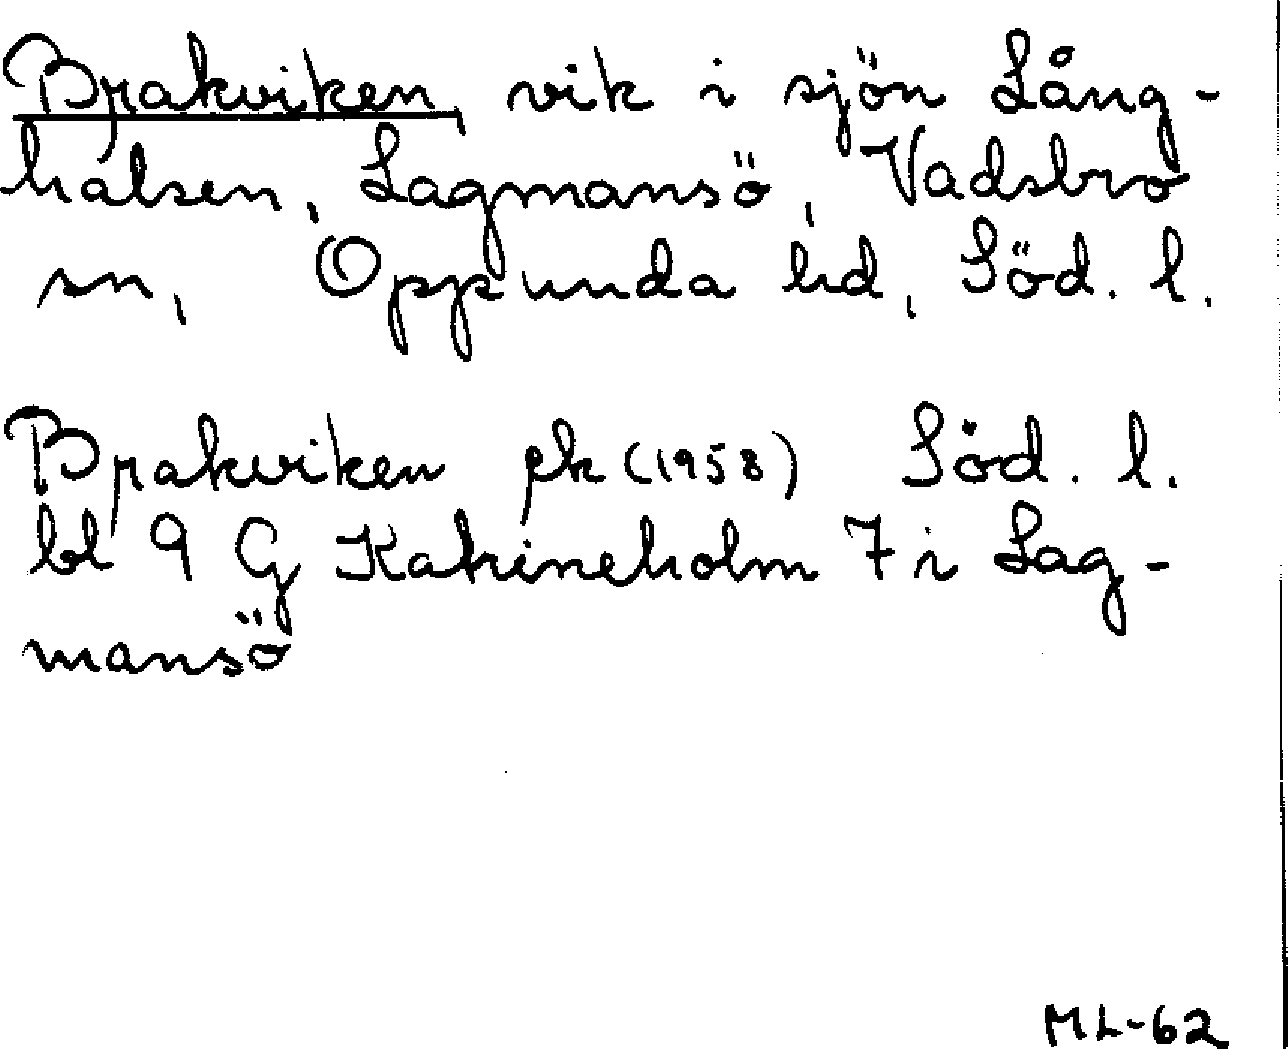 Brakviken, vik i sjön Lång-
halsen, Lagmansö, Vadsbro
sn, Oppunda hd, Söd. l.
Brakviken ek (1958) Söd. l.
bl 9 G Katrineholm 7 i Lag-
mansö
ML-62